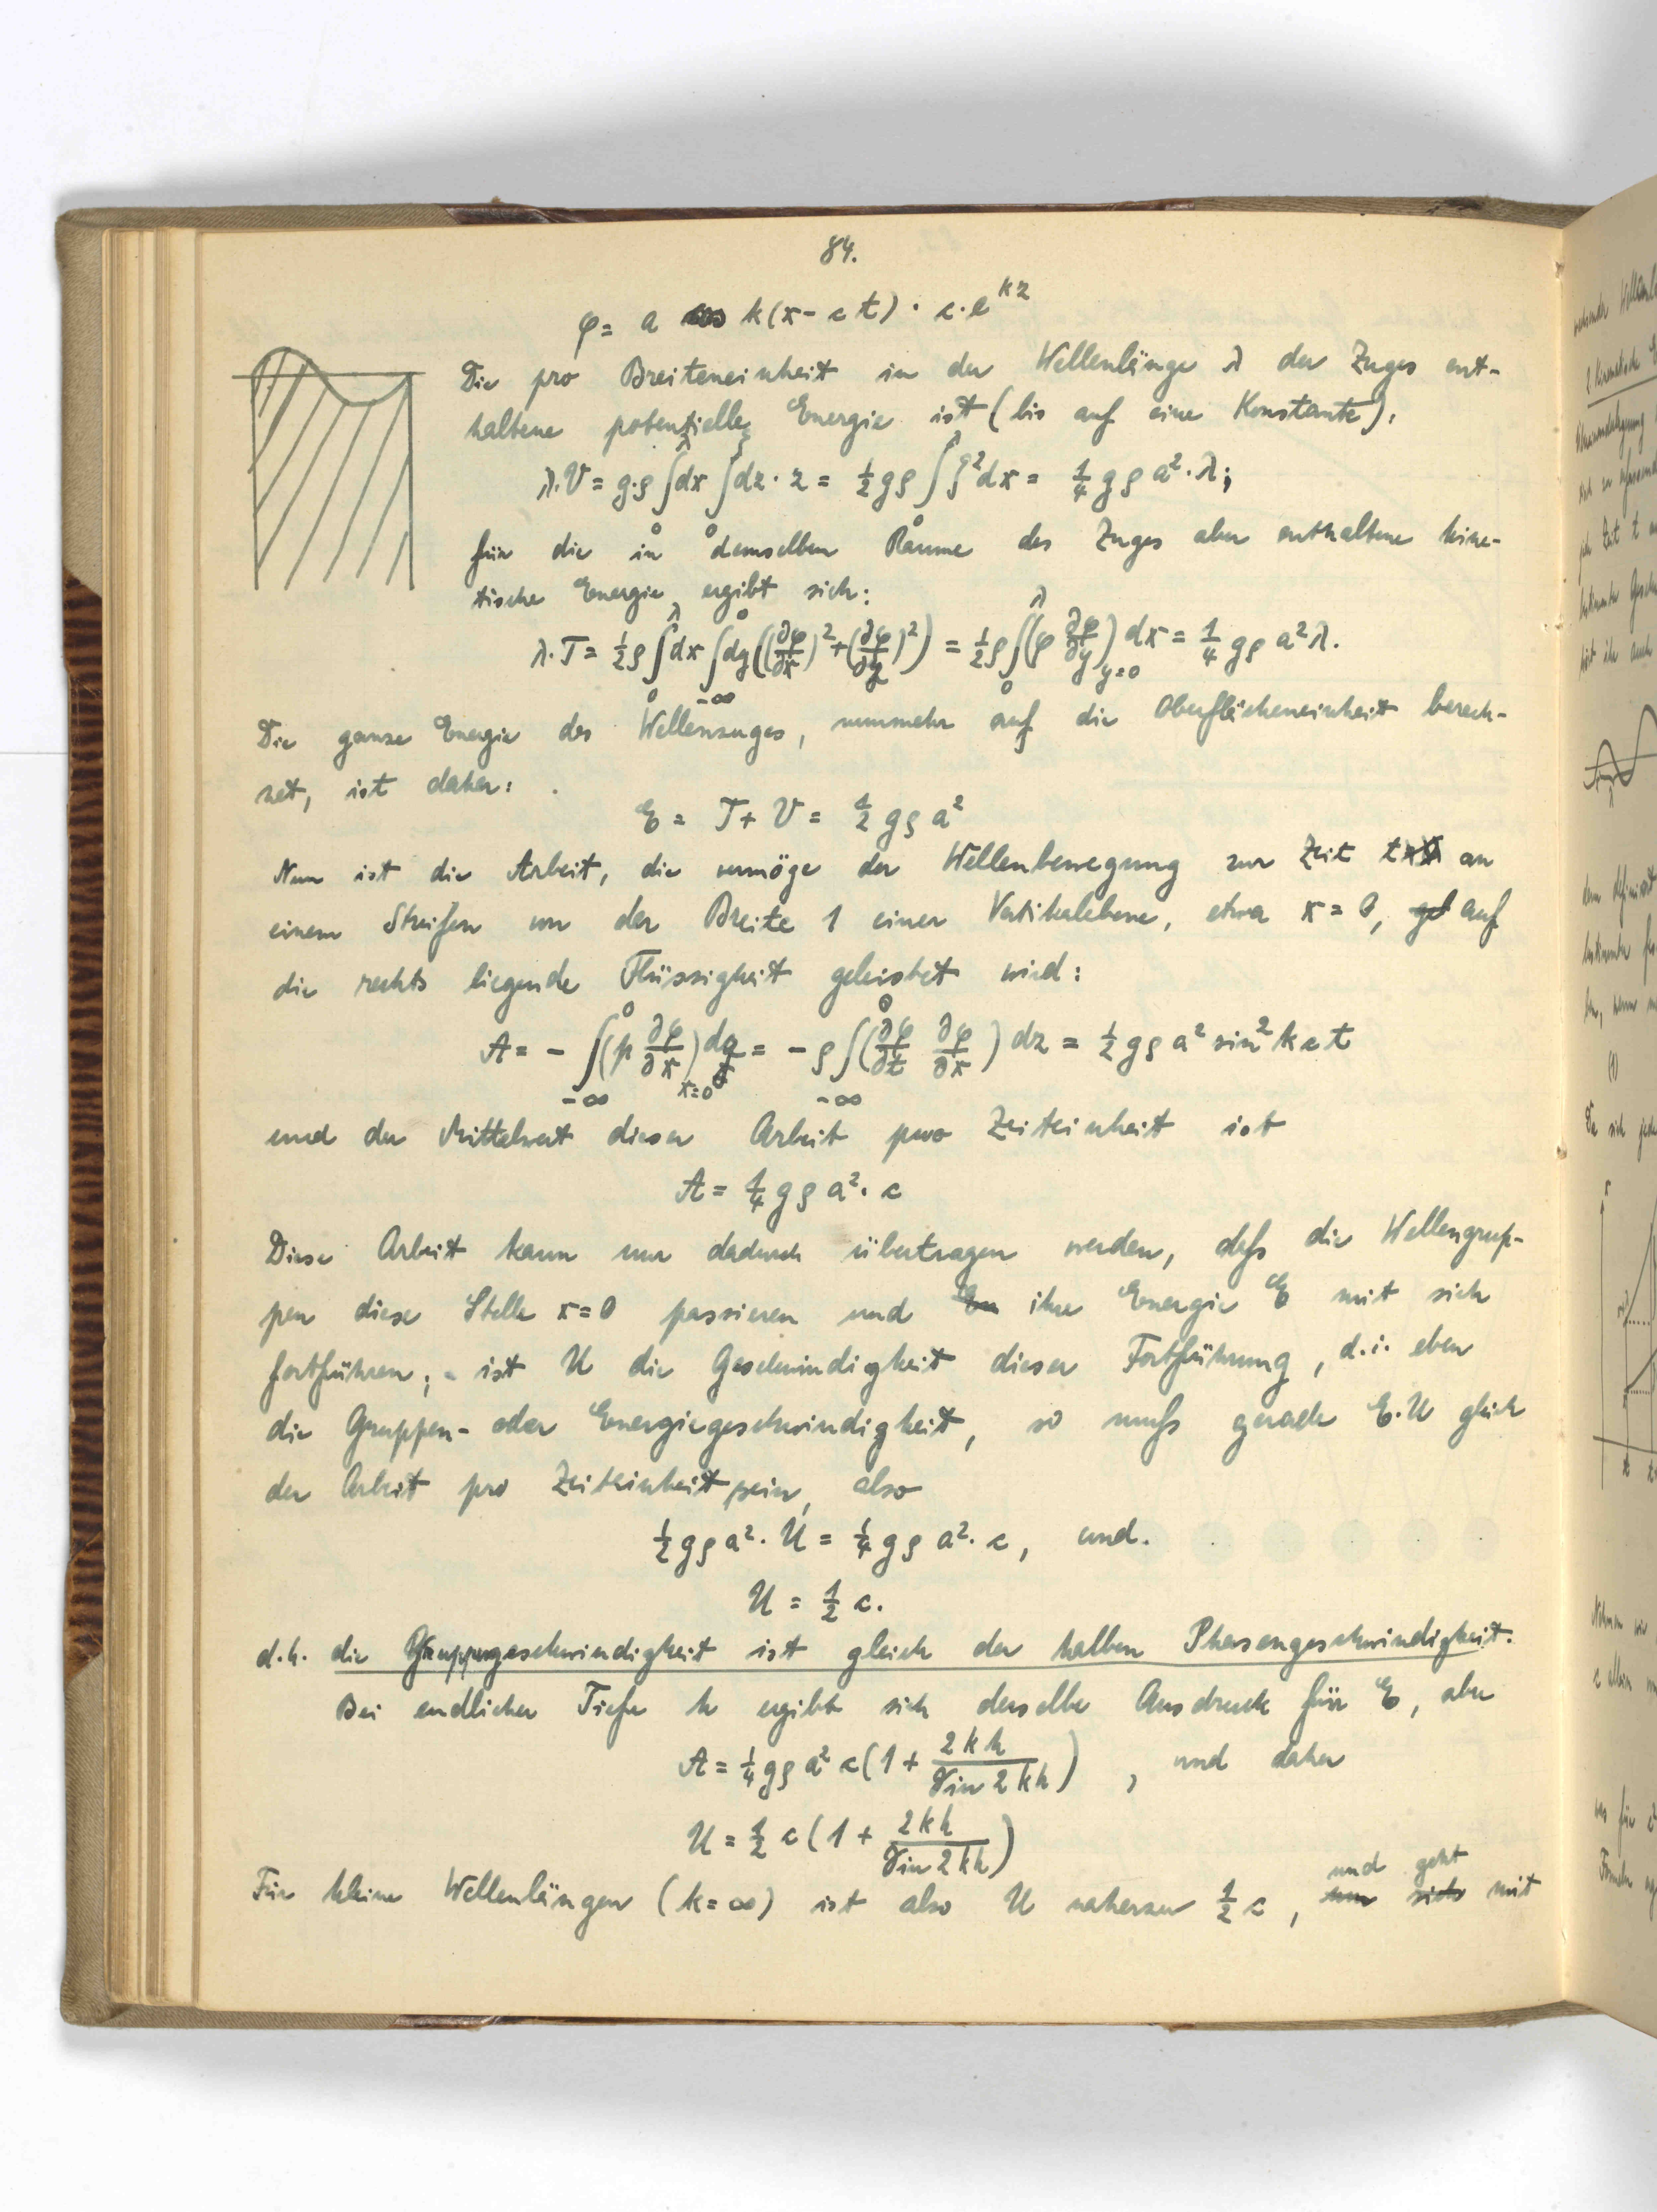 84.
φ = a cos k(x - ct) · c · e^{kz}
Die pro Breiteneinheit in der Wellenlänge λ des Zuges ent-
haltene potenzielle Energie ist (bis auf eine Konstante):
λ·V = g·ρ ∫_0^λ dx ∫_0^ζ dz · z = ½ gρ ∫_0^λ ζ² dx = ¼ gρ a²·λ;
für die in demselben Raume des Zuges aber enthaltene kine-
tische Energie ergibt sich:
λ·T = ½ρ ∫_0^λ dx ∫_{-∞}^0 dy ((∂φ/∂x)² + (∂φ/∂y)²) = ½ρ ∫_0^λ (φ ∂φ/∂y)_{y=0} dx = ¼ gρ a² λ.
Die ganze Energie des Wellenzuges, nunmehr auf die Oberflächeneinheit berech-
net, ist daher:
E = T + V = ½ gρ a²
Nun ist die Arbeit, die vermöge der Wellenbewegung zur Zeit t an
einem Streifen von der Breite 1 einer Vertikalebene, etwa x = 0, auf
die rechts liegende Flüssigkeit geleistet wird:
A = - ∫_{-∞}^0 (p ∂φ/∂x)_{x=0} dz = - ρ ∫_{-∞}^0 (∂φ/∂t ∂φ/∂x) dz = ½ gρ a² sin² kct
und der Mittelwert dieser Arbeit pro Zeiteinheit ist
A = ¼ gρ a² · c
Diese Arbeit kann nur dadurch übertragen werden, daß die Wellengrup-
pen diese Stelle x = 0 passieren und ihre Energie E mit sich
fortführen; - ist U die Geschwindigkeit dieser Fortführung, d.i. eben
die Gruppen- oder Energiegeschwindigkeit, so muß gerade E·U gleich
der Arbeit pro Zeiteinheit sein, also
½ gρ a² · U = ¼ gρ a² · c, und.
U = ½ c.
d.h. die Gruppengeschwindigkeit ist gleich der halben Phasengeschwindigkeit.
Bei endlicher Tiefe h ergibt sich derselbe Ausdruck für E, aber
A = ¼ gρ a² c (1 + 2kh/Sin 2kh), und daher
U = ½ c (1 + 2kh/Sin 2kh)
Für kleine Wellenlängen (k = ∞) ist also U nahezu ½ c, und geht mit